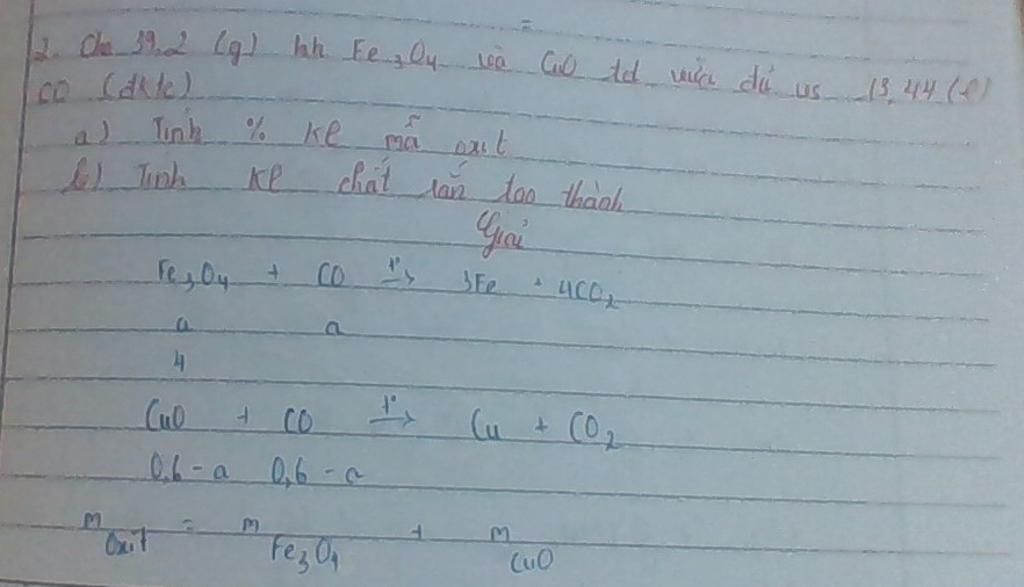 2. Cho 39,2 (g) hh Fe3O4 và CuO td vừa đủ vs 13,44 (l)
CO (đktc)
a) Tính % Kl mỗ oxit
b) Tính Kl chất rắn tạo thành
Giải
Fe3O4 + CO t° → 3Fe + 4CO2
a a
4
CuO + CO t° → Cu + CO2
0,6 - a 0,6 - a
m oxit = m Fe3O4 + m CuO